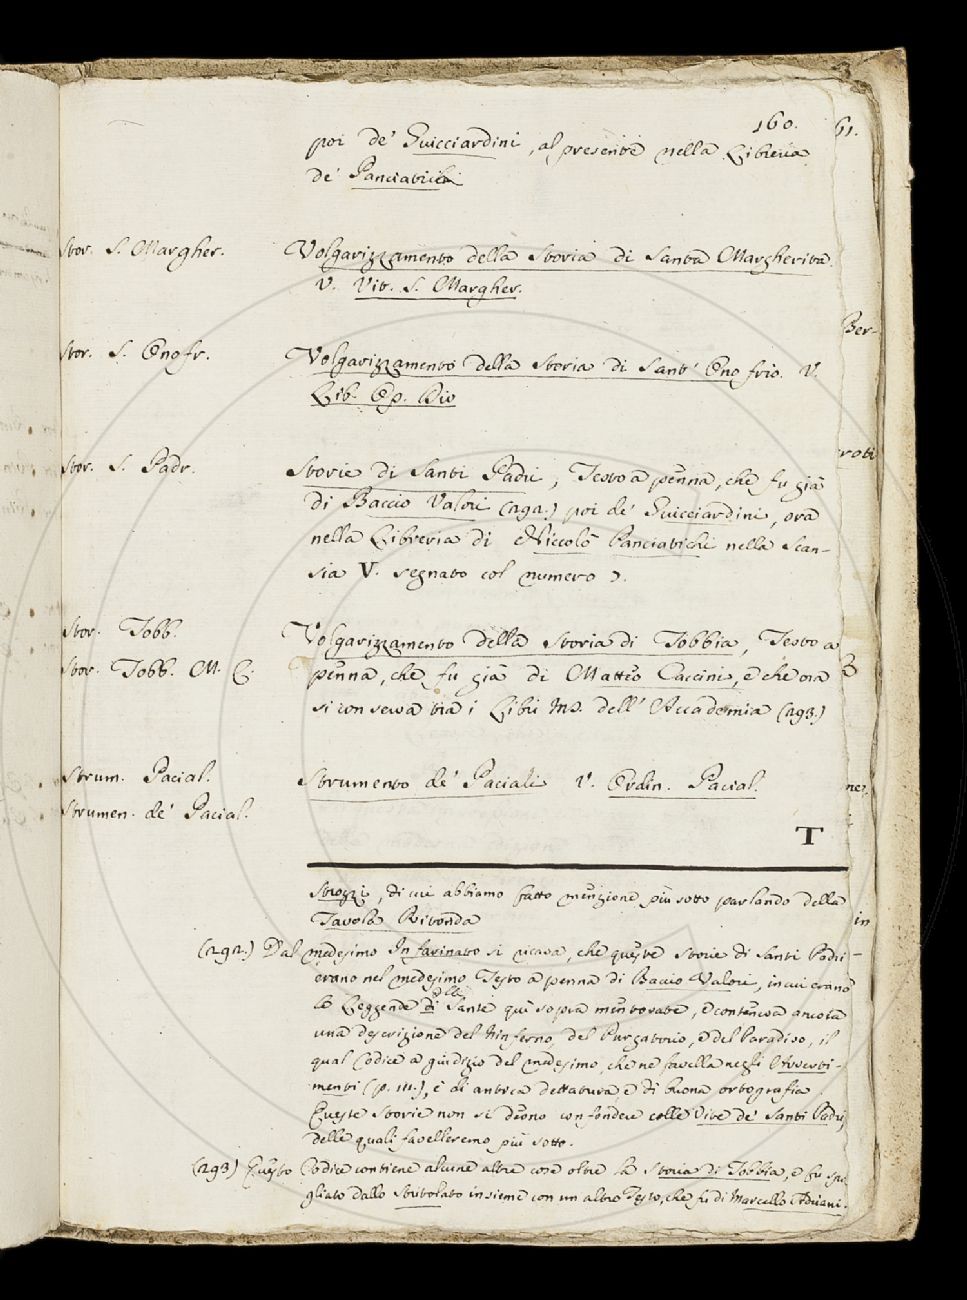 160.
61.
poi de' Guicciardini, al presente nella Libreria
de' Panciatichi
Stor. S. Margher. Volgarizzamento della Storia di Santa Margherita.
V. Vit. S. Margher.
Ber-
Stor. S. Onofr. Volgarizzamento della Storia di Sant' Onofrio. V.
Lib. Op. Div
roti
Stor. S. Padr. Storie di Santi Padri, Testo a penna, che fu già
di Baccio Valori (292.) poi de' Guicciardini, ora
nella Libreria di Niccolò Panciatichi nella Scan-
sia V. segnato col numero 7.
Stor. Tobb. Volgarizzamento della Storia di Tobbia, Testo a
Stor. Tobb. M. C. penna, che fu già di Matteo Caccini, e che ora
si conserva tra i Libri MS. dell' Accademia (293.)
Strum. Pacial. Strumento de' Paciali V. Ordin. Pacial.
Strumen. de' Pacial.
T
Strozzi, di cui abbiamo fatto menzione più sotto parlando della
Tavola Ritonda
in
(292.) Dal medesimo Infarinato si ricava, che queste Storie di Santi Padri
erano nel medesimo Testo a penna di Baccio Valori, in cui erano
le Leggende di Sante qui sopra mentovate, e conteneva ancora
una descrizione del Ninferno, del Purgatorio, e del Paradiso, il
qual Codice a giudizio del medesimo, che ne favella negli Avverti-
menti (p. 111.), è di antica dettatura, e di buona ortografia.
Queste Storie non si deono confondere colle Vite de' Santi Padri,
delle quali favelleremo più sotto.
(293) Questo Codice contiene alcune altre cose oltre la Storia di Tobbia, e fu spo-
gliato dallo Stritolato insieme con un altro Testo, che fu di Marcello Adriani.